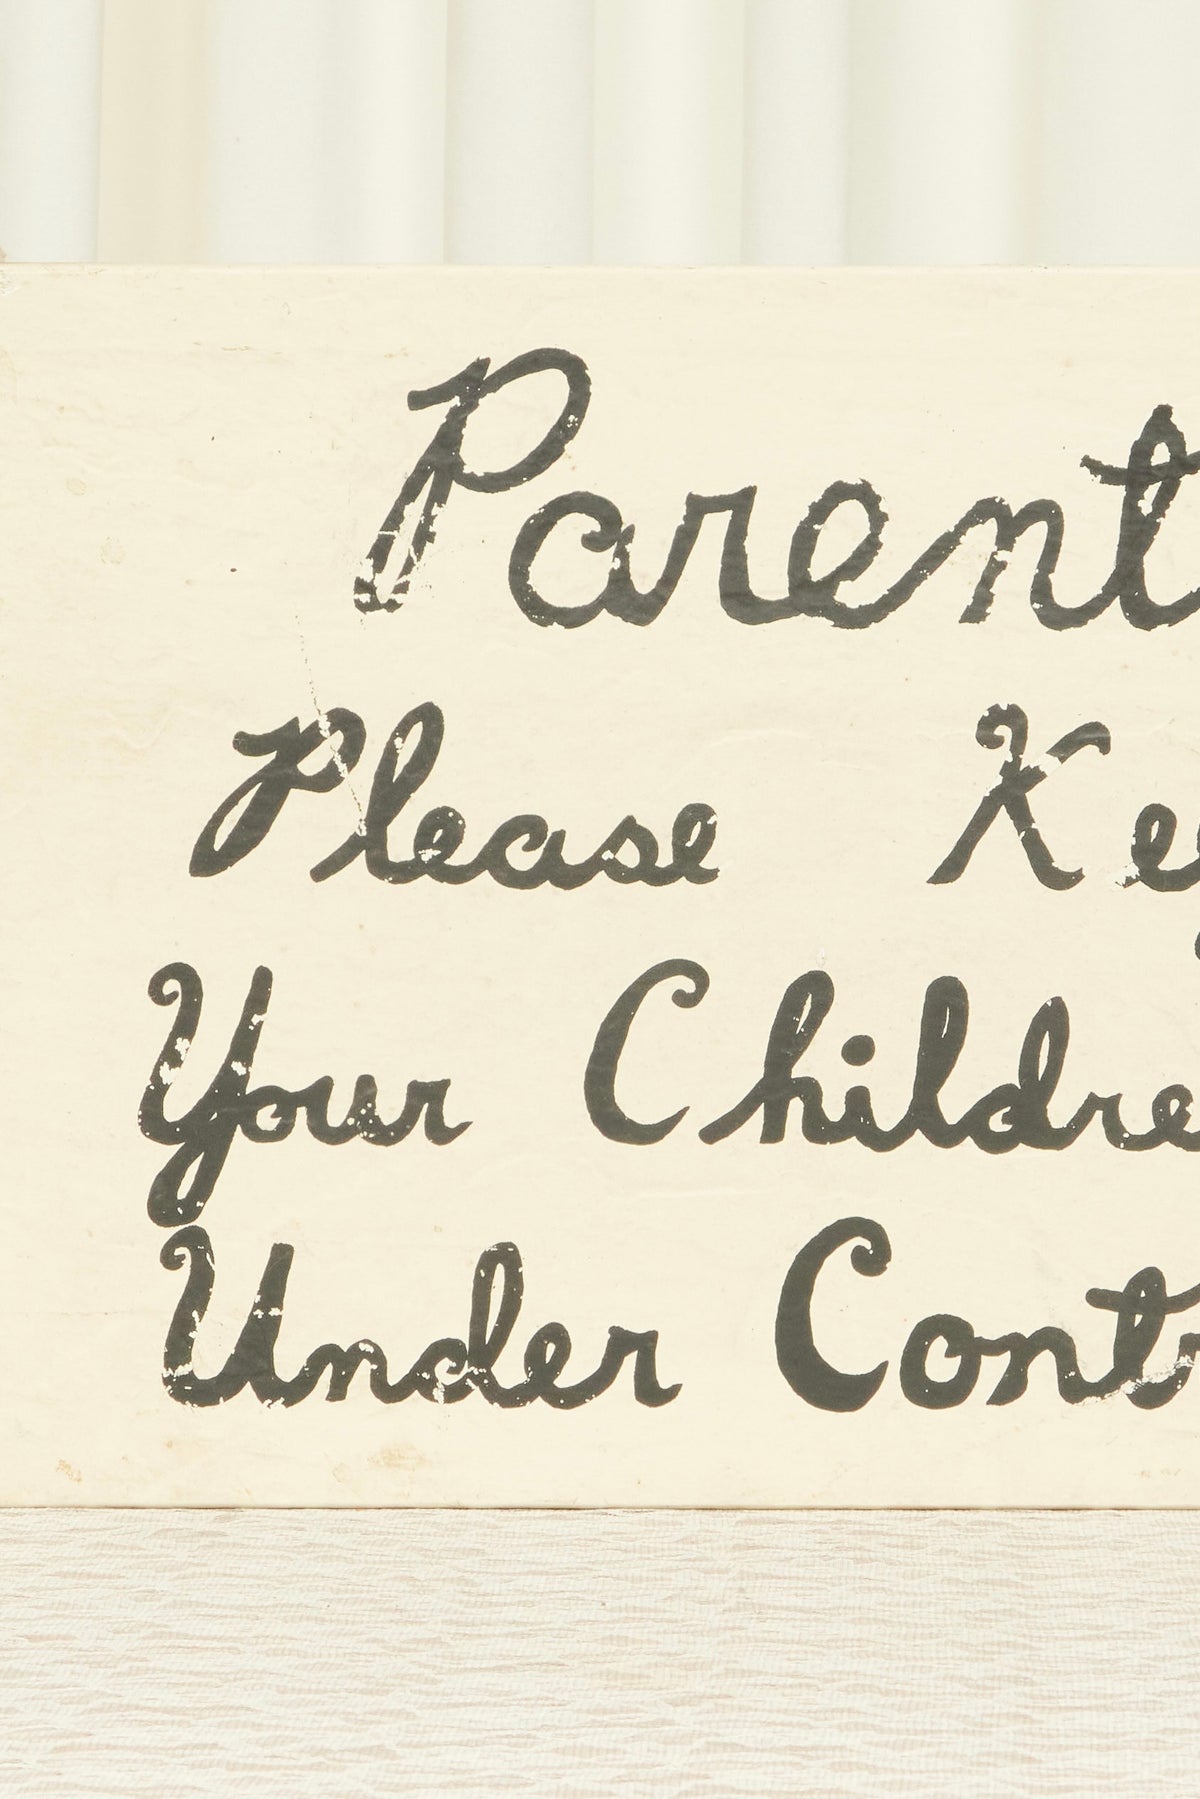 Parent
Please Ke
Your Childre
Under Cont